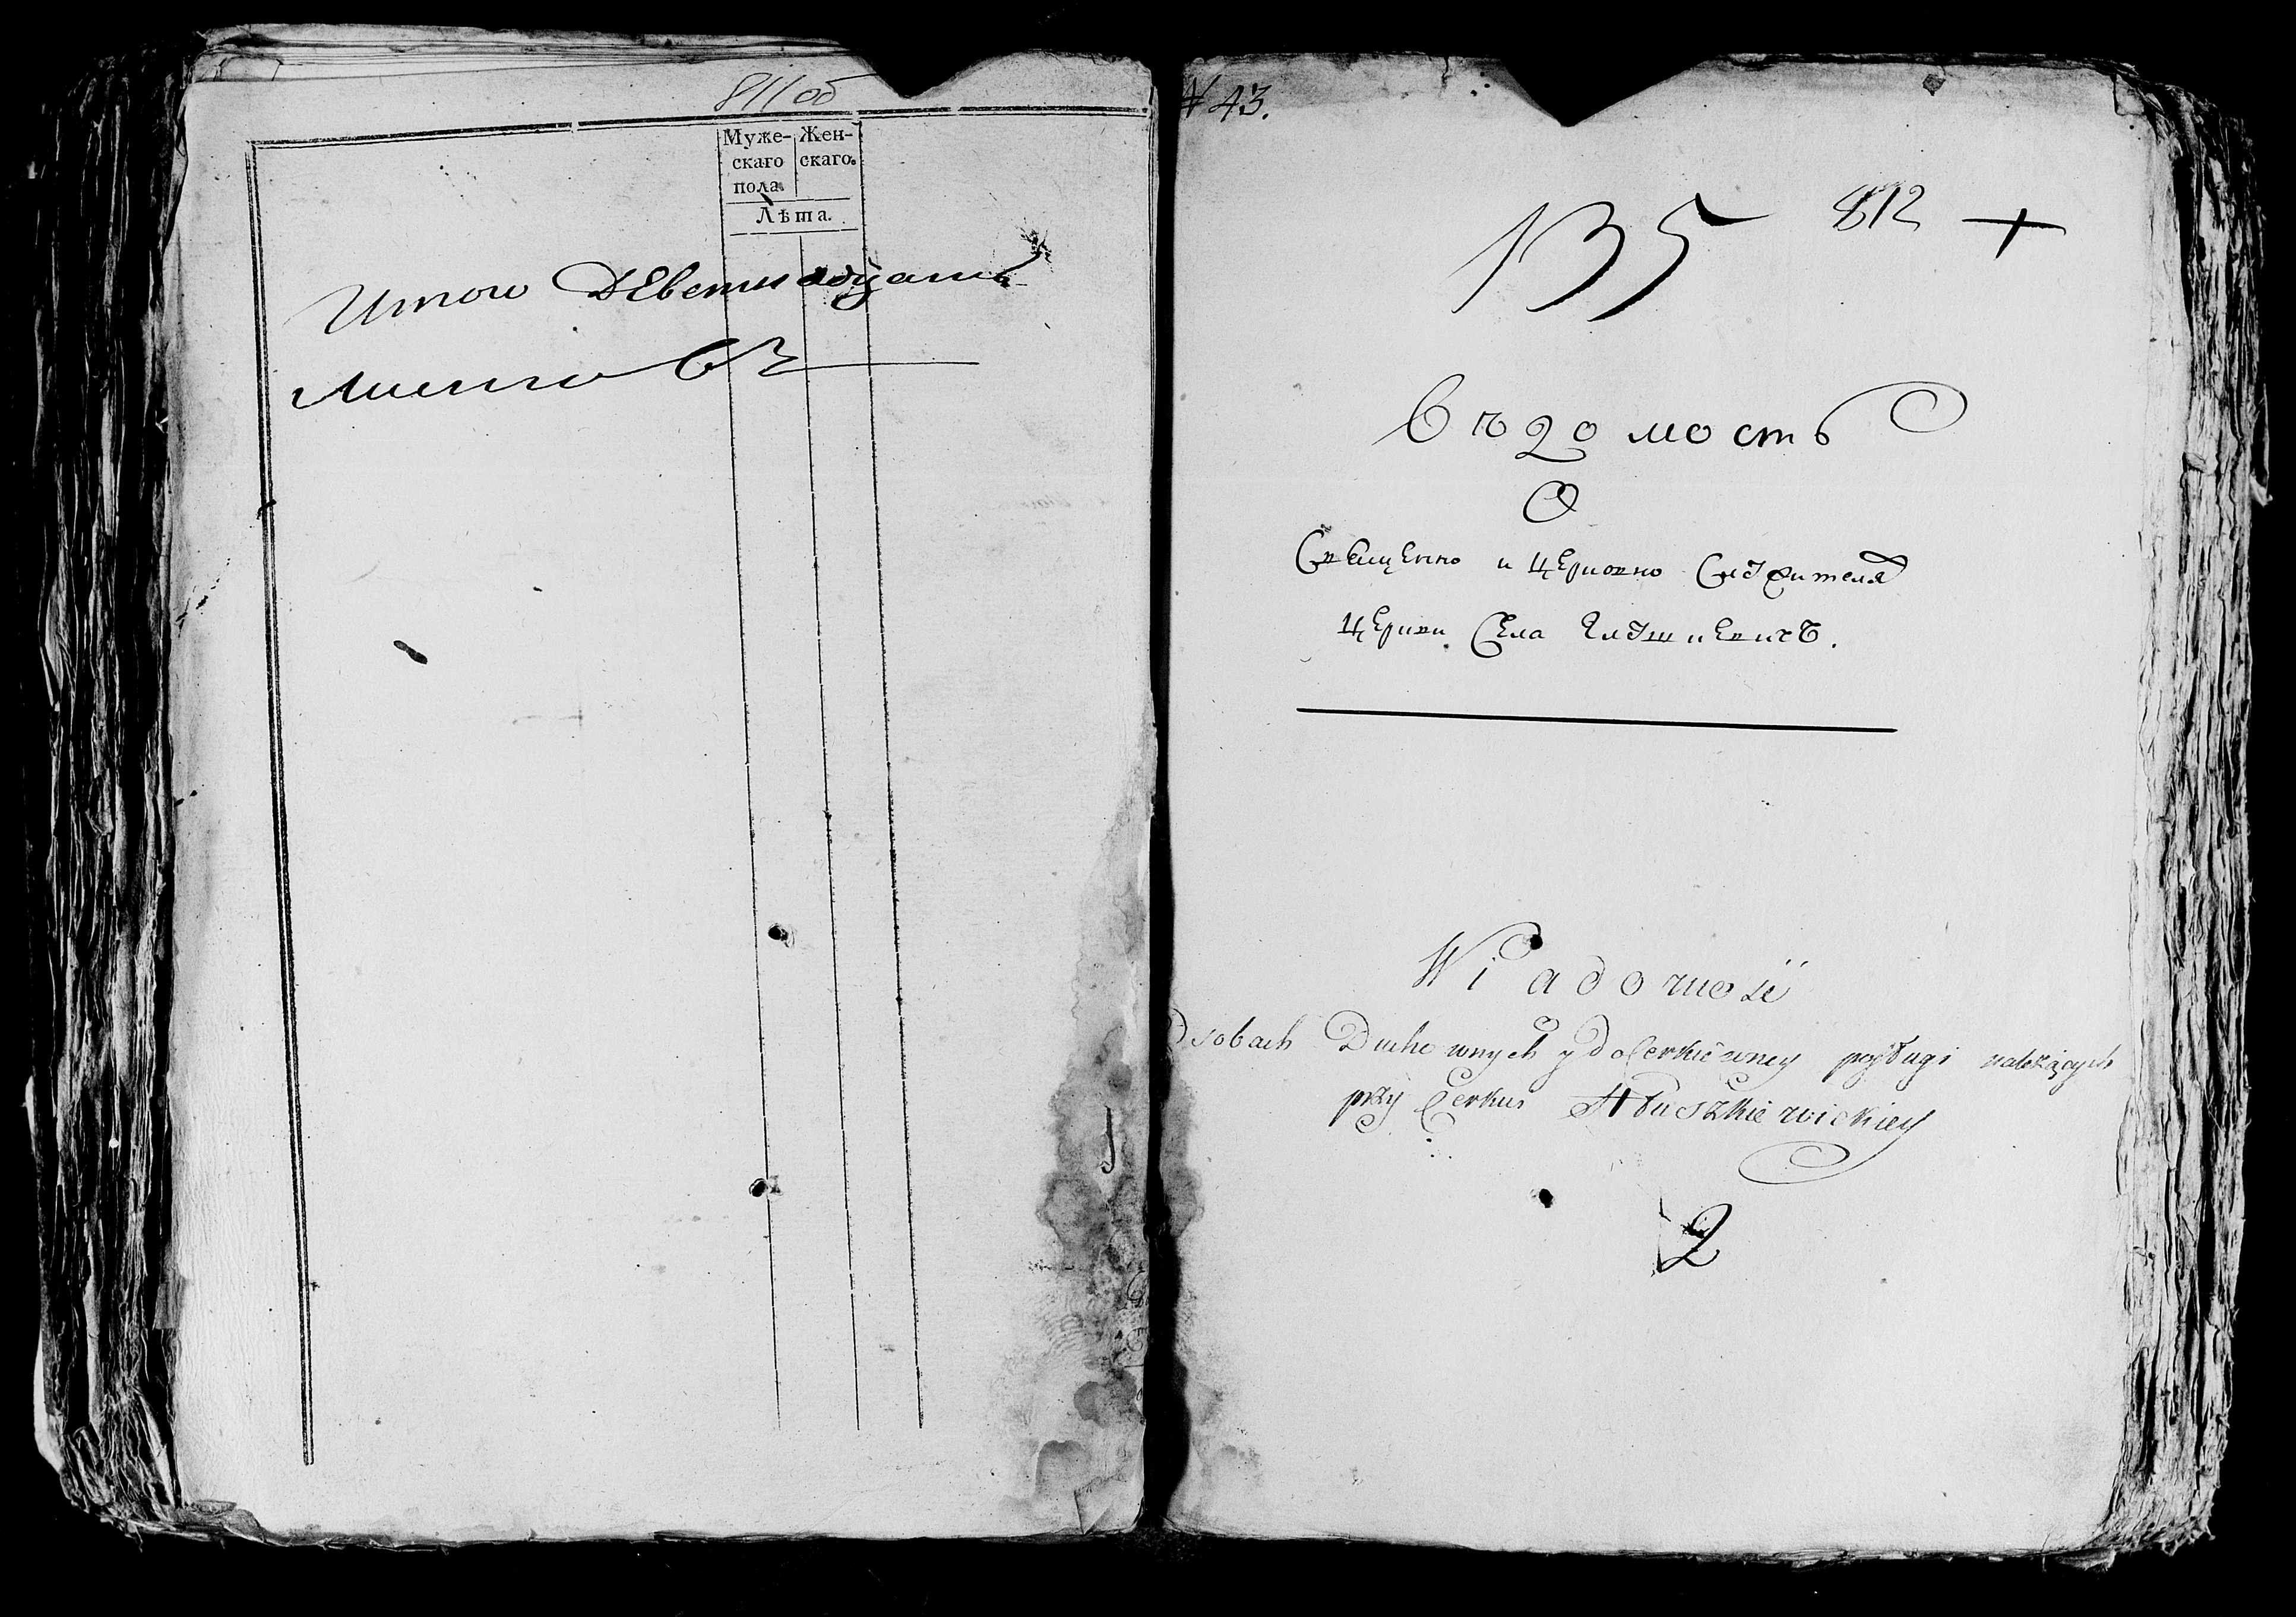 811 об
Муже- Жен-
скаго скаго.
пола
Лѣта.
Итого Деветнадцать
Листовъ
№ 43.
135 812 +
Вѣдомость
О
Священно и церковно Служителя
Церкви Села Глушкевичъ.
Wiadomość
Osobach Duchownych y do Cerkiewney posługi należących
przy Cerkwi Hłuszkiewickiey
2